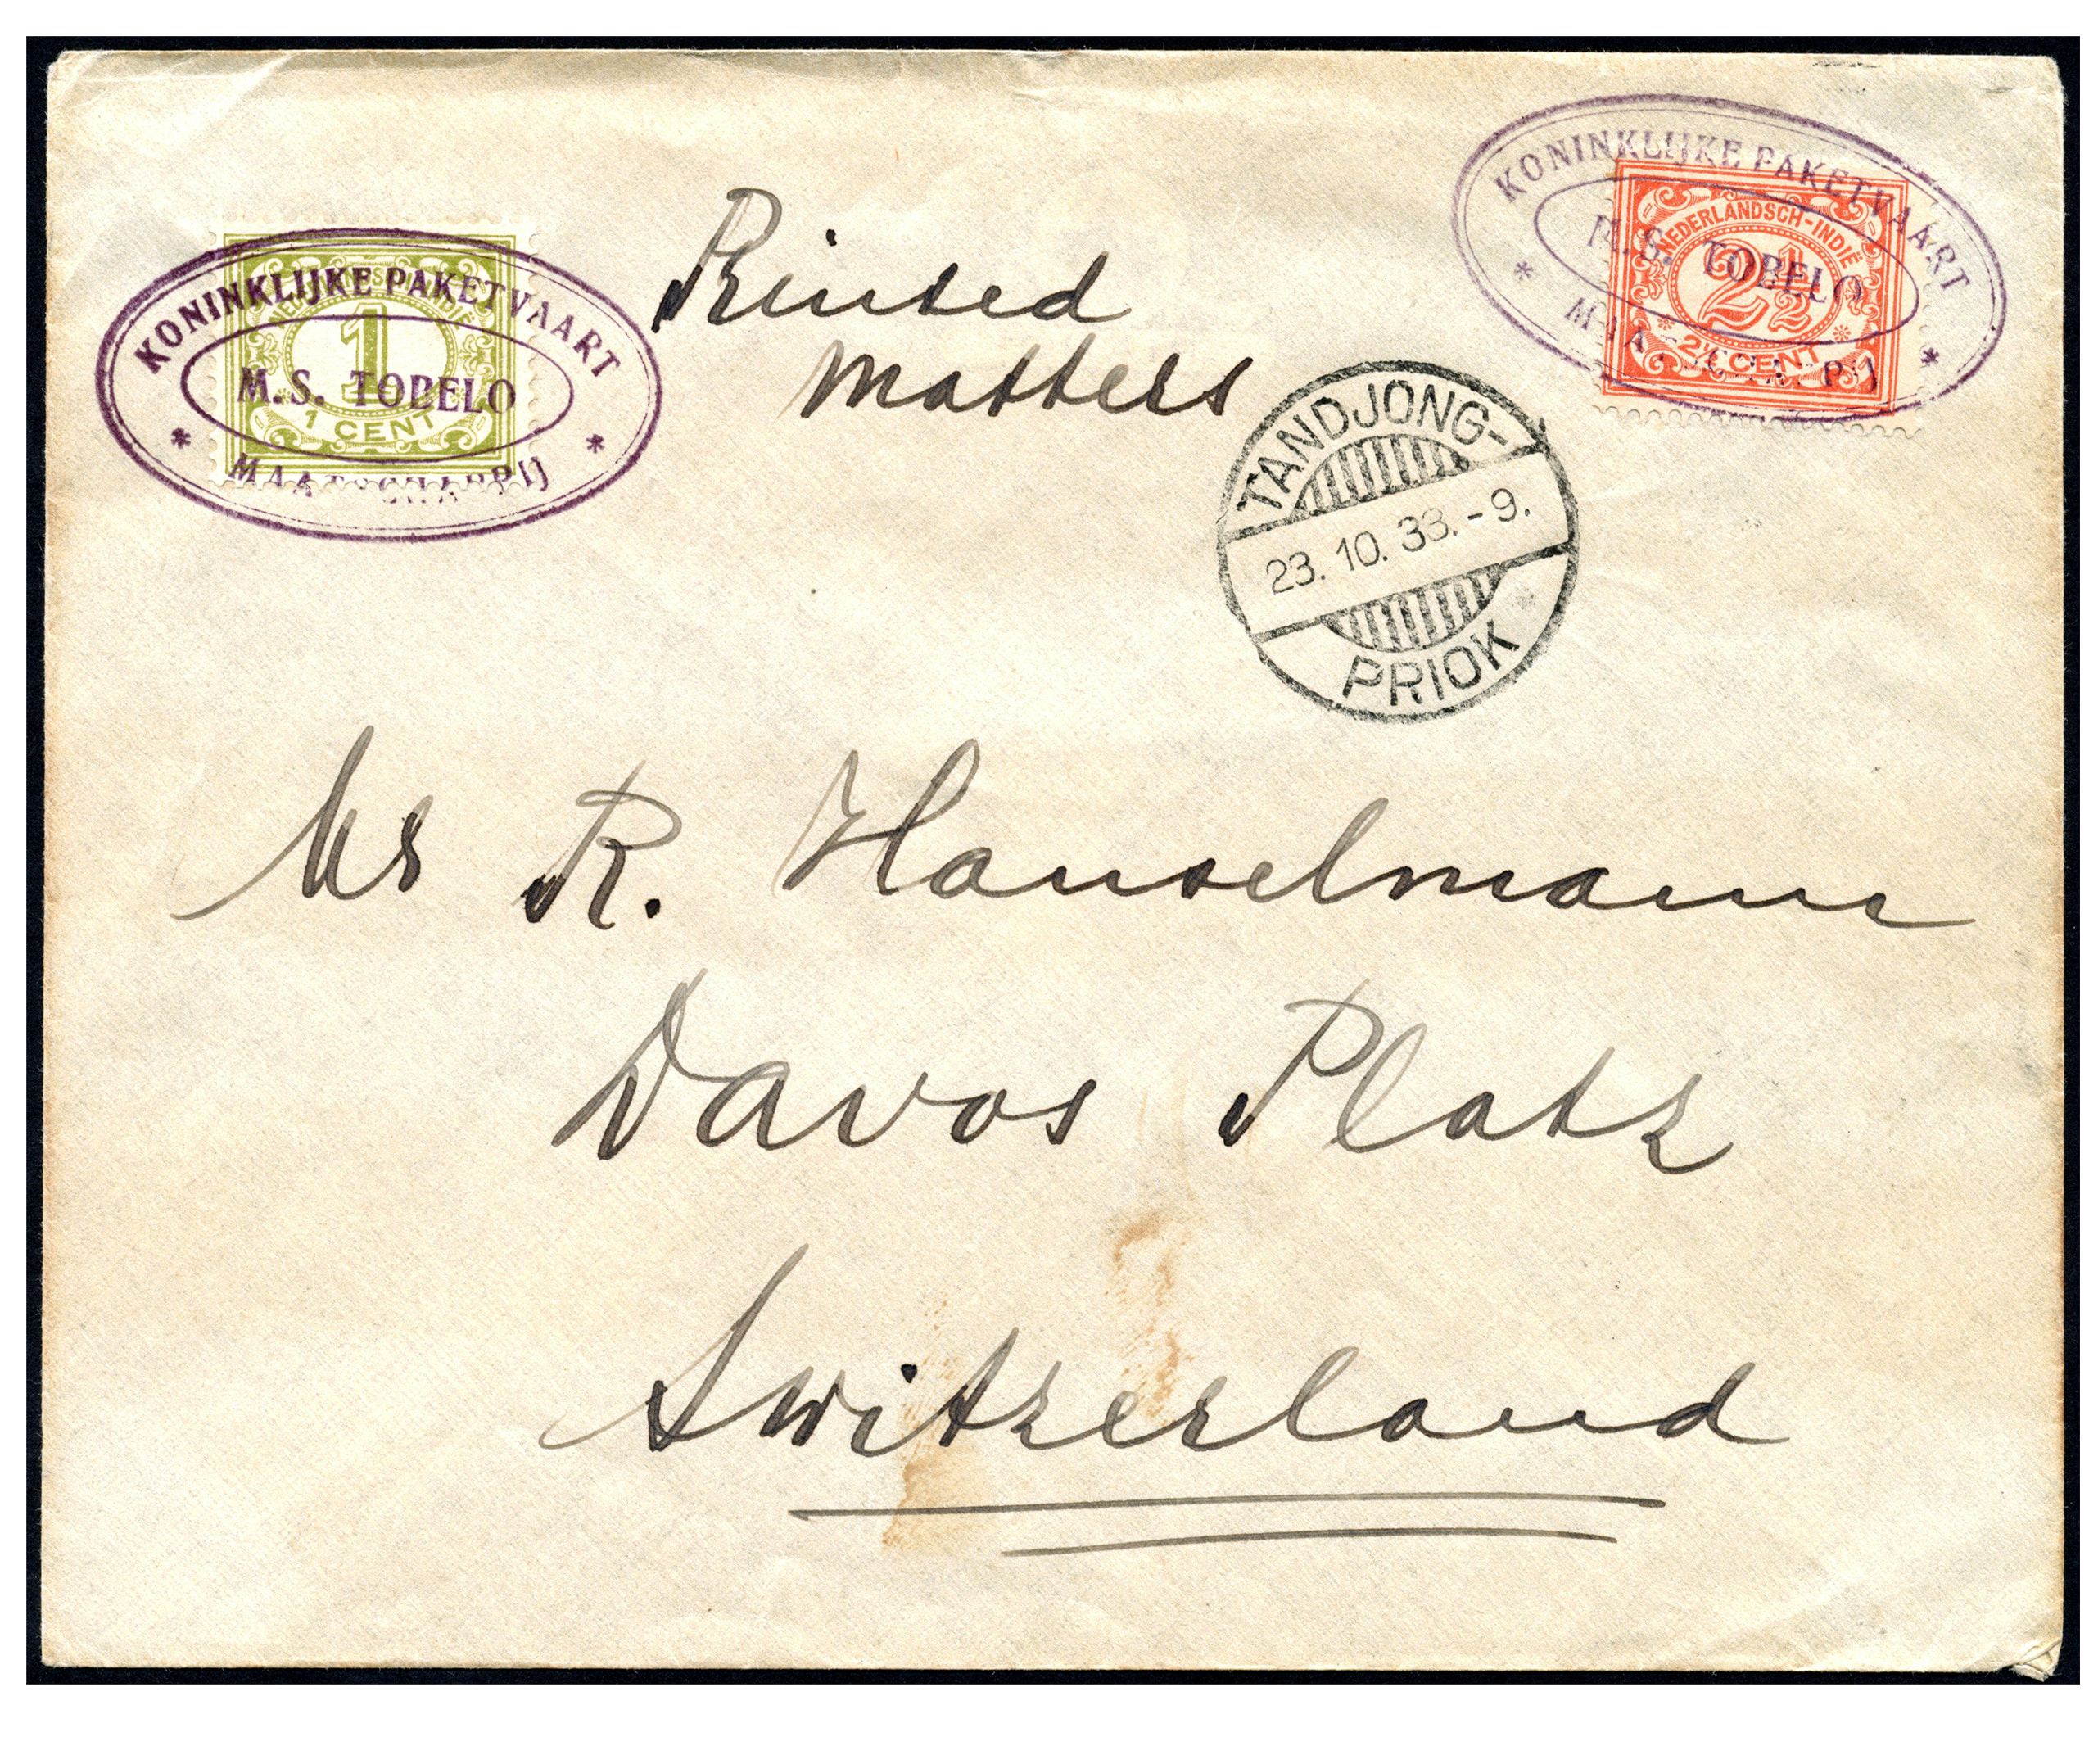 KONINKLIJKE PAKETVAART
M.S. TOBELO
* MAATSCHAPPIJ *
1
1 CENT
KONINKLIJKE PAKETVAART
M.S. TOBELO
* MAATSCHAPPIJ *
NEDERLANDSCH-INDIË
2½
2½ CENT
Printed
matters
TANDJONG-
23.10.33.-9.
PRIOK
Mr R. Hanselmann
Davos Platz
Switzerland